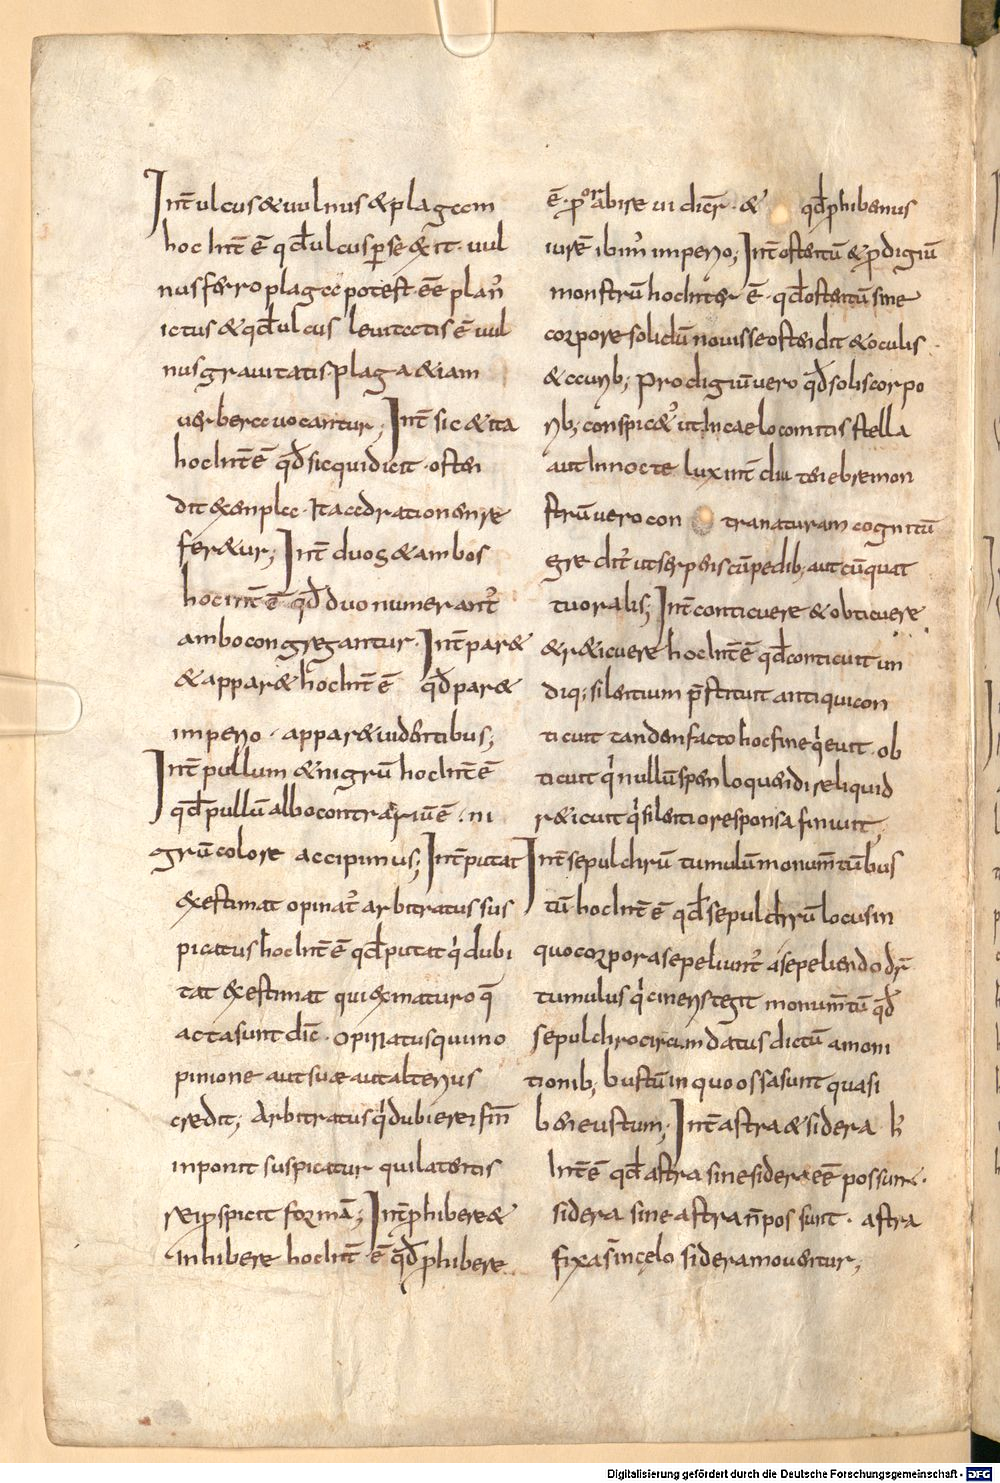 Int̄ ulcus & uulnus & plagam
hoc int̄ ē qd̄ ulcus per se exit · uul
nus ferro plaga potest · eē plan̄
ictus & qd̄ ulcus leuitactis ē uul
nus grauitatis plaga & iam
uerbera uocantur; Int̄ sic & ita
hoc int̄ ē qd̄ sic quid icit · osten
dit exenpla · Ita ad rationem re
feretur; Int̄ duos & ambos
hoc int̄ ē qd̄ duo numerant̄
ambo congregantur · Int̄ paret
& apparet hoc int̄ ē qd̄ paret
imperio · apparet uidentibus;
Int̄ pullum & nigrū hoc int̄ ē
qd̄ pullū albo contrariū ē · ni
grū colore accipimus; Int̄ putat
exestimat opinat̄ arbitratus sus
picatus hoc int̄ ē qd̄ putat q̇ dubi
tat exestimat qui ex maturo q̄
acta sunt dic̄ · opinatus qui in o
pinione aut sua aut alterius
credit; Arbitratus q̇ dubie rei fin̄
inponit suspicatur qui latentis
rei perspicit formā; Int̄ prohibere &
inhibere hoc int̄ ē qd̄ prohibere
ē · porr abire ui dicer̄ · & qd̄ prohibemus
iure inhibem̄ imperio; Int̄ ostentū & prodigiū
monstrū hoc inter ē · qd̄ ostentū sine
corpore solidū nouisse ostendit & oculis
& aurib; prodigiū uero qd̄ solis corpo
rib; conspicet̄ ut in caelo comitis stella
aut in nocte lux int̄ diu tenebre mon
strū uero con tra naturam cognitū
gre dit̄ ut serpens cū pedib; aut cū quat
tuor alis; Int̄ conticuere & obticuere
& reticuere hoc int̄ ē qd̄ conticuit un
diq; silentium p̄stitit antiqui con
ticuit tandem facto hoc fine q̇euit · ob
ticuit q̇ nullū spem loquendi reliquid
reticuit q̇ silentio responsa finiuit;
Int̄ sepulchrū tumulū monum̄tū bus
tū hoc int̄ ē qd̄ sepulchrū locus in
quo corpora sepeliunt̄ a sepeliendo dr̄
tumulus q̇ cineris tegit monum̄tū qd̄
sepulchro circumdatus dictū a moni
tionib; bustū in quo ossa sunt quasi
bene ustum; Int̄ astra & sidera h̄
int̄ ē qd̄ astra sine sidera eē possunt ·
sidera sine astra n̄ possunt · astra
fixa s̄ in cęlo sidera mouentur;
Digitalisierung gefördert durch die Deutsche Forschungsgemeinschaft - DFG